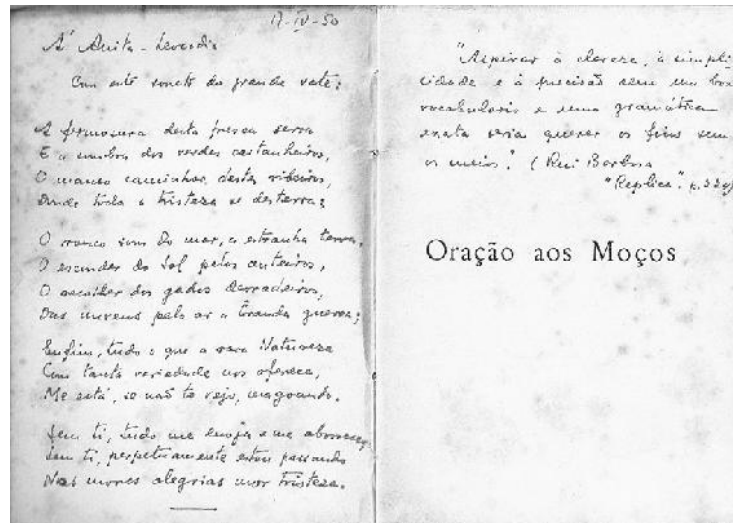 17-IV-50
A' Anita -
Com este soneto do grande vate:
A fermosura desta fresca serra
E a sombra dos verdes castanheiros,
O manso caminhar destes ribeiros,
Donde toda a tristeza se desterra;
O rouco som do mar, a estranha terra,
O esconder do Sol pelos outeiros,
O recolher dos gados derradeiros,
Das nuvens pelo ar a branda guerra;
Enfim, tudo o que a rara Natureza
Com tanta variedade nos oferece,
Me está, se não te vejo, magoando.
Sem ti, tudo me enoja e me aborrece,
Sem ti, perpetuamente estou passando
Nas mores alegrias mor tristeza.
"Aspirar à clareza, à simpli-
cidade e à precisão sem um bom
vocabulario e uma gramática
exata seria querer os fins sem
os meios." (Rui Barbosa
"Replica". p.
Oração aos Moços